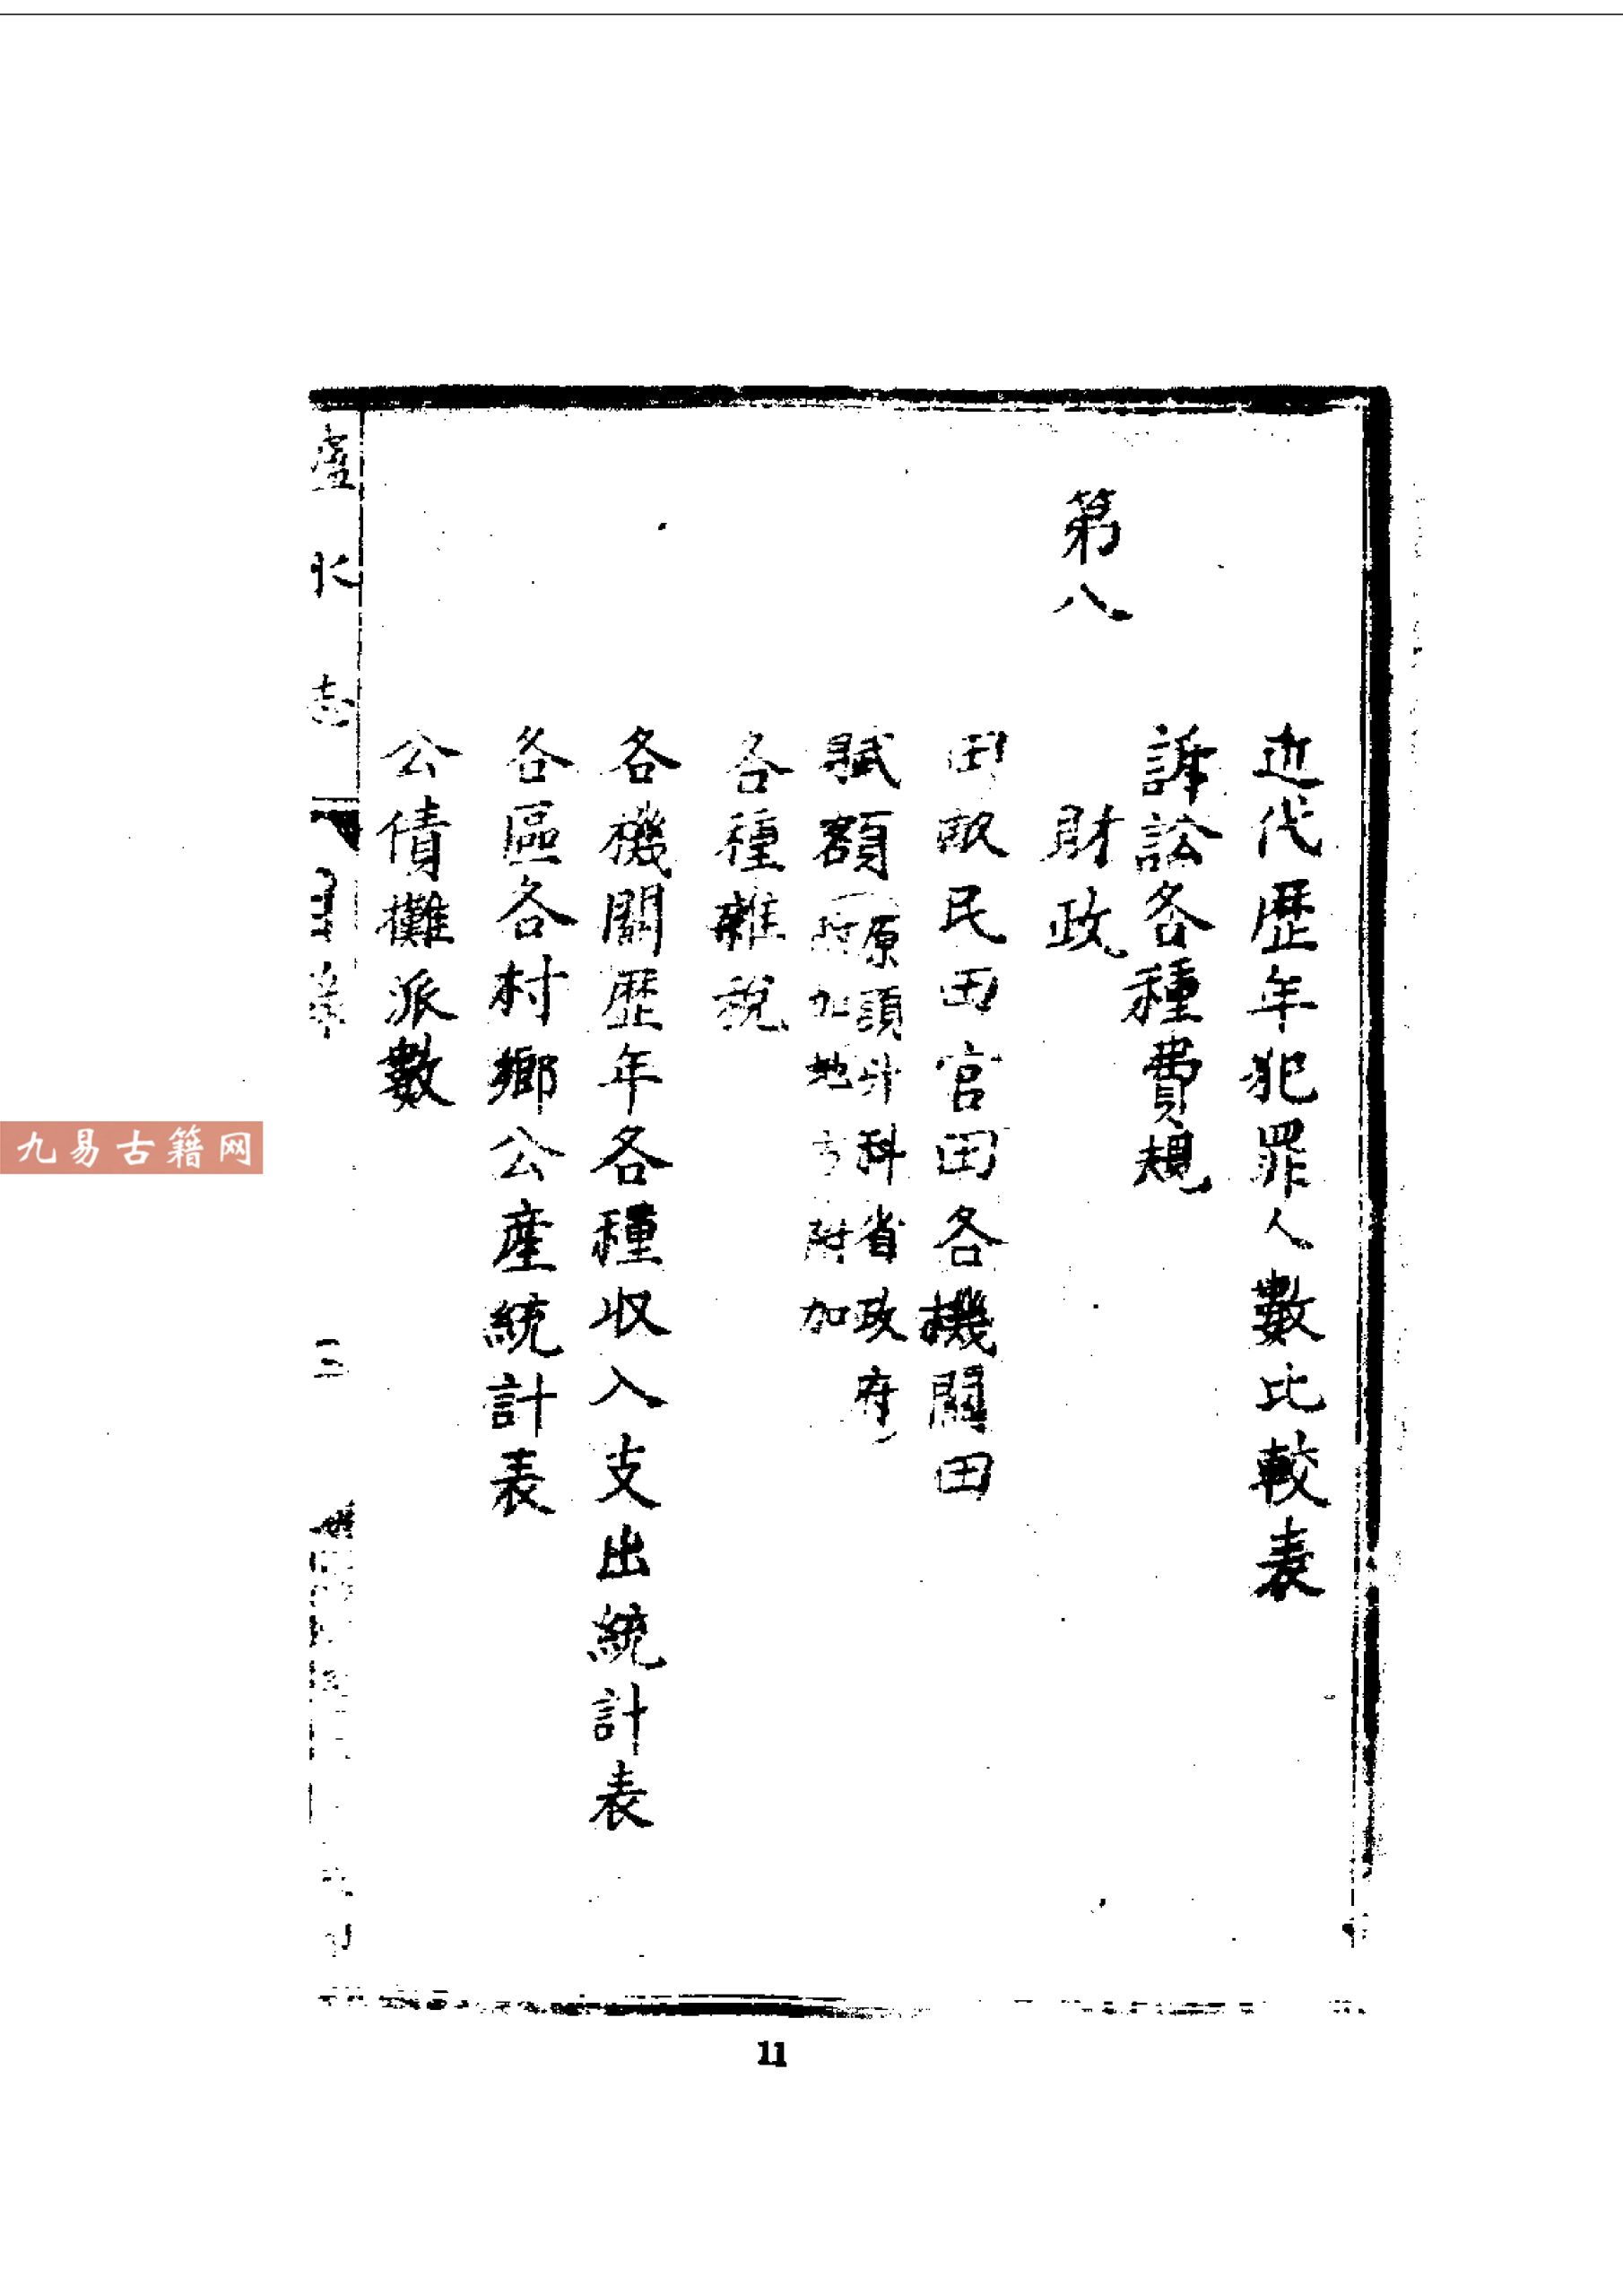 近代歷年犯罪人數比較表
訴訟各種費規
第八　財政
田畝民田官田各機關田
賦額（原額升科省政府
附加地方附加
各種雜稅
各機關歷年各種收入支出統計表
各區各村鄉公產統計表
公債攤派數
志
三
11
九易古籍网